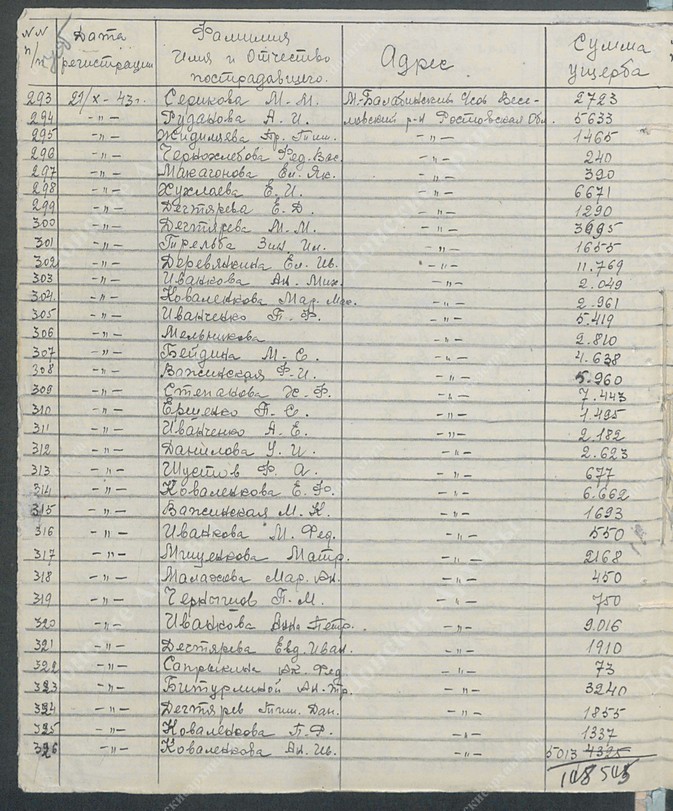 NN п/п Дата регистрации Фамилия Имя и Отчество пострадавшего. Адрес Сумма ущерба
293 21/X-43г. Серикова М. М. М.-Балабинский с/сов Весе- 2723
294 -"- А. И. ловский р-н Ростовская Обл. 5633
295 -"- Пр. Тим. -"- 1465
296 -"- Чернохлебова Фед. Вас. -"- 240
297 -"- Макагонова Ел. Як. -"- 390
298 -"- Хужлаева Е. И. -"- 6671
299 -"- Дегтярева Е. Д. -"- 1290
300 -"- Дегтярева М. М. -"- 3695
301 -"- Трельба Зин. Ил. -"- 1655
302 -"- Деревянкина Ел. Ив. -"- 11.769
303 -"- Иванкова Ан. Мих. -"- 2.049
304. -"- Коваленкова Мар. Мак. -"- 2.961
305 -"- Иванченко П. Ф. -"- 5.419
306 -"- Мельникова -"- 2.810
307 -"- Бейдина М. С. -"- 4.638
308 -"- Важинская Ф. И. -"- 5.960
309 -"- Степанова Х. Ф. -"- 7.443
310 -"- Ершенко П. С. -"- 1.495
311 -"- Иванченко А. Е. -"- 2.182
312 -"- Данилова У. И. -"- 2.623
313 -"- Шустов Ф. А. -"- 677
314 -"- Коваленкова Е. Ф. -"- 6.662
315 -"- Важинская М. К. -"- 1693
316 -"- Иванкова М. Фед. -"- 550
317 -"- Мищенкова Матр. -"- 2168
318 -"- Малахова Мар. Ан. -"- 450
319 -"- Чернышов П. М. -"- 750
320 -"- Иванкова Анна Петр. -"- 9.016
321 -"- Дегтярева Евд. Иван. -"- 1910
322 -"- Сапрыкина Ак. Фед -"- 73
323 -"- Битюрлиной Ан. Тр. -"- 3240
324 -"- Дегтярев Тим. Дан. -"- 1855
325 -"- Коваленкова П. Ф. -"- 1337
326 -"- Коваленкова Ан. Ив. -"- 5013 4325
118 545